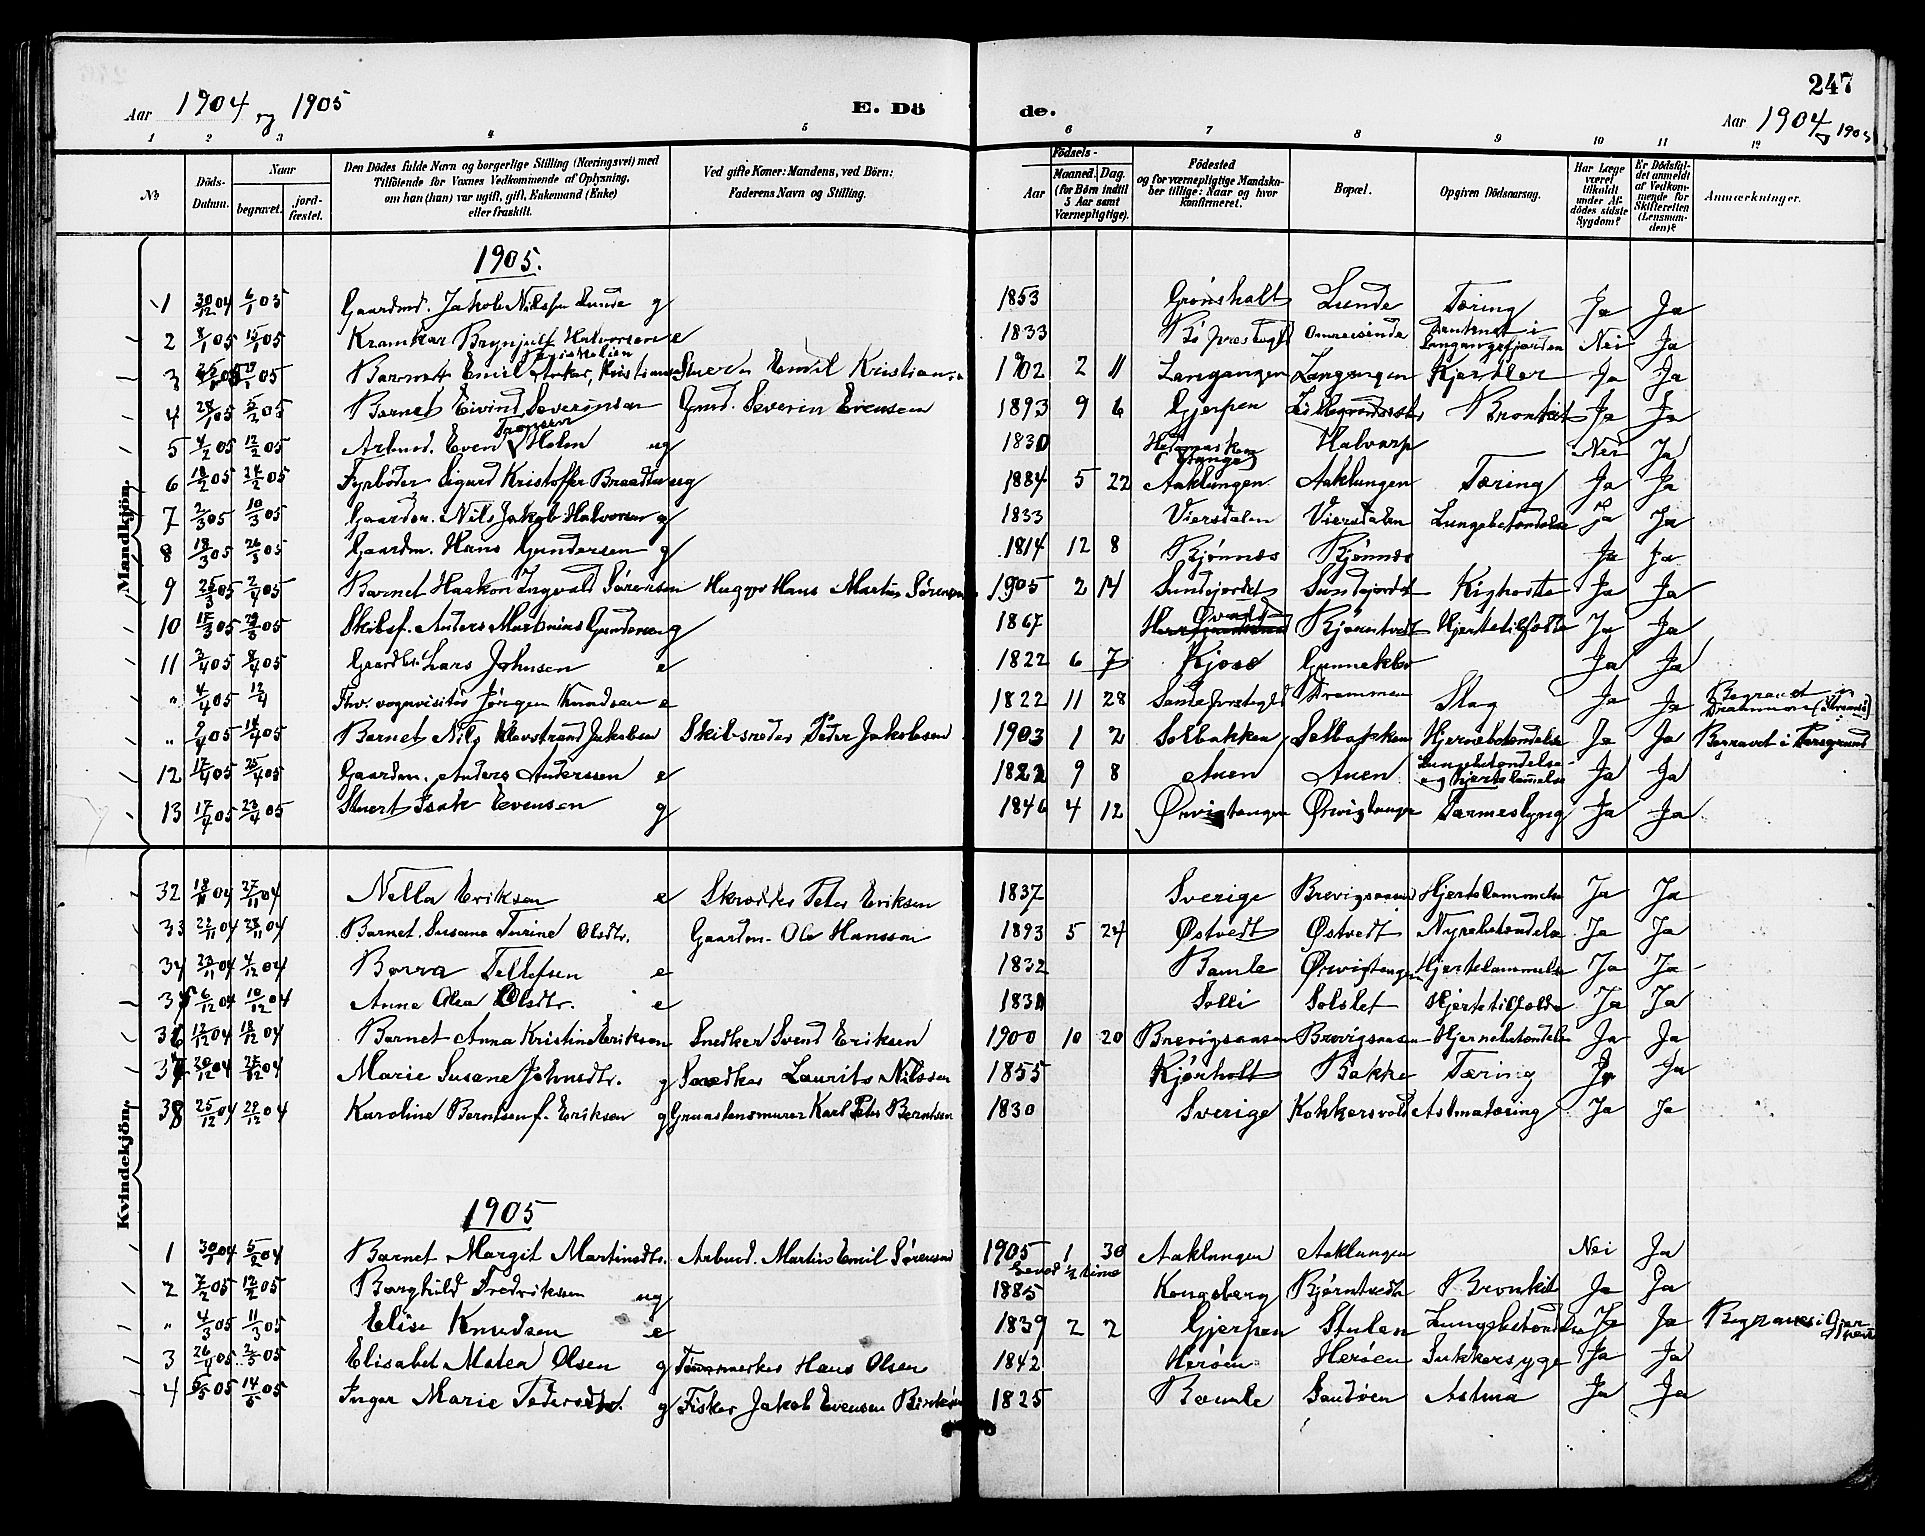 247
Aar 1904 og 1905 E. Dö de. Aar 1904 og 1905
1 2 3 4 5 6 7 8 9 10 11 12
No Döds-Datum. Naar begravet. jordfæstet. Den Dödes fulde Navn og borgerlige Stilling (Næringsvei) med Tilföiende for Voxnes Vedkommende af Oplysning, om han (hun) var ugift, gift, Enkemand (Enke) eller fraskilt. Ved gifte Koner: Mandens, ved Börn: Faderens Navn og Stilling. Födsels- Aar Maaned. Dag. (for Börn indtil 5 Aar samt Værnepligtige). Födested og for værnepligtige Mandskaber tillige: Naar og hvor konfirmeret. Bopæl. Opgiven Dödsaarsag. Har Læge været tilkaldt under Afdödes sidste Sygdom? Er Dödsfaldet anmeldt af Vedkommende for Skifteretten (Lensmanden)? Anmærkninger.
Mandkjön.
1905.
1 30/12 04 6/1 05 Gaardmd. Jakob Nilssen Lunde g 1853 Grønsholt Lunde Tæring Ja Ja
2 8/1 05 15/1 05 Kramkar Brynjulf Halvorsen e 1833 Bø Omreisende Nei Ja
3 05 Barnet Emil Anker, Kristiansen Emil Kristiansen 1902 2 11 Langangen Langangen Ja Ja
4 28/1 05 5/2 05 Barnet Eivind Severinsen Gmd. Severin Evensen 1893 9 6 Gjerpen Bronkit Ja Ja
5 4/2 05 12/2 05 Arbmd. Even Holm ug 1830 Hedemarken (Stange) Halvarp Nei Ja
6 18/2 05 24/2 05 Fyrbøder Sigurd Kristoffer ug 1884 5 22 Aaklungen Aaklungen Tæring Ja Ja
7 2/3 05 10/3 05 Gaardm. Nils Jakob Halvorsen g 1833 Viersdalen Viersdalen Lungebetændelse Ja Ja
8 18/3 05 26/3 05 Gaardm. Hans Gundersen g 1814 12 8 Bjønnes Bjønnes Ja Ja
9 25/3 05 2/4 05 Barnet Haakon Ingvald Sørensen Hugger Hans Martin Sørensen 1905 2 14 Sundejordet Sundejordet Kighoste Ja Ja
10 15/3 05 Skibsf. Anders Gundersen g 1867 Bjørntvedt Hjertetilfælde Ja Ja
11 3/4 05 8/4 05 Lars Johnsen e 1822 6 7 Kjose Gunneklev Ja Ja
" 4/4 05 12/4 Fhv. vognvisitør Jørgen Knudsen e 1822 11 28 Drammen Slag Ja Ja Begravet i Drammen (Strømsø)
" 9/4 05 14/4 05 Barnet Nils Klevstrand Jakobsen Skibsreder Peter Jakobsen 1903 1 2 Solbakken Solbakken Hjernebetændelse Ja Ja Begravet i Porsgrund
12 17/4 05 25/4 05 Gaardm. Anders Anderssen e 1822 9 8 Auen Auen Lungebetændelse og hjertelammelse Ja Ja
13 17/4 05 23/4 05 Stuert Isak Evensen g 1846 4 12 Ørvigtangen Ørvigtangen Tarmeslyng Ja Ja
Kvindekjön.
32 18/11 04 27/11 04 Nella Eriksen e Skrædder Peter Eriksen 1837 Sverige Brevigsaasen Hjertelammelse Ja Ja
33 22/11 04 28/11 04 Barnet Susane Turine Olsdtr. Gaardm. Ole Hansson 1893 5 24 Østvedt Østvedt Nyrebetændelse Ja Ja
34 04 4/12 04 Tellefsen e 1832 Bamle Ørvigtangen Hjertelammelse Ja Ja
35 6/12 04 10/12 04 Anne Olea Olsdtr. e 1831 Solli Solslet Hjertetilfælde Ja Ja
36 12/12 04 18/12 04 Barnet Anna Kristine Eriksen Snedker Svend Eriksen 1900 10 20 Brevigsaasen Brevigsaasen Hjernebetændelse Ja Ja
37 20/12 04 04 Marie Susane Johnsdtr. g Snedker Laurits Nilssen 1855 Kjørholt Bakke Tæring Ja Ja
38 25/12 04 29/12 04 Karoline Berntsen f. Eriksen g Graastensmurer Karl Peter Berntsen 1830 Sverige Kokkersvold Astmatæring Ja Ja
1905
1 30/1 04 5/2 04 Barnet Margit Martinsdtr. Arbmd. Martin Emil Sørensen 1905 1 30 Aaklungen Aaklungen Nei Ja
Leved 1/2 time
2 7/2 05 12/2 05 Borghild Fredriksen ug 1885 Kongsberg Bjørntvedt Bronkit Ja Ja
" 4/3 05 11/3 05 Elise Knudsen e 1839 2 2 Gjerpen Stulen Lungebetændelse Ja Ja Begraves i Gjerpen
3 26/4 05 2/5 05 Elisabet Matea Olsen g Hans Olsen 1842 Herøen Herøen Sukkersyge Ja Ja
4 5/5 05 14/5 05 Inger Marie Pedersdtr. g Fisker Jakob Evensen 1825 Bamle Sandøen Astma Ja Ja